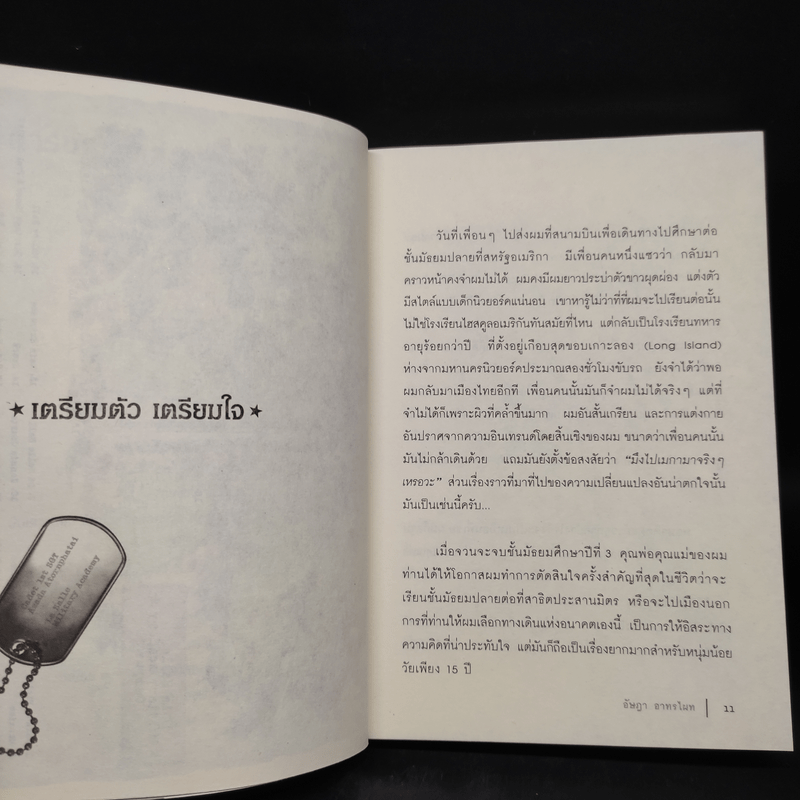 ★ เตรียมตัว เตรียมใจ ★
Cadet 1st BOT
Asada Atornphatai
La Salle
Military Academy
วันที่เพื่อนๆ ไปส่งผมที่สนามบินเพื่อเดินทางไปศึกษาต่อ
ชั้นมัธยมปลายที่สหรัฐอเมริกา มีเพื่อนคนหนึ่งแซวว่า กลับมา
คราวหน้าคงจำผมไม่ได้ ผมคงมีผมยาวประบ่าตัวขาวผุดผ่อง แต่งตัว
มีสไตล์แบบเด็กนิวยอร์คแน่นอน เขาหารู้ไม่ว่าที่ที่ผมจะไปเรียนต่อนั้น
ไม่ใช่โรงเรียนไฮสคูลอเมริกันทันสมัยที่ไหน แต่กลับเป็นโรงเรียนทหาร
อายุร้อยกว่าปี ที่ตั้งอยู่เกือบสุดขอบเกาะลอง (Long Island)
ห่างจากมหานครนิวยอร์คประมาณสองชั่วโมงขับรถ ยังจำได้ว่าพอ
ผมกลับมาเมืองไทยอีกที เพื่อนคนนั้นมันก็จำผมไม่ได้จริงๆ แต่ที่
จำไม่ได้ก็เพราะผิวที่คล้ำขึ้นมาก ผมอันสั้นเกรียน และการแต่งกาย
อันปราศจากความอินเทรนด์โดยสิ้นเชิงของผม ขนาดว่าเพื่อนคนนั้น
มันไม่กล้าเดินด้วย แถมมันยังตั้งข้อสงสัยว่า “มึงไปเมกามาจริงๆ
เหรอวะ” ส่วนเรื่องราวที่มาที่ไปของความเปลี่ยนแปลงอันน่าตกใจนั้น
มันเป็นเช่นนี้ครับ...
เมื่อจวนจะจบชั้นมัธยมศึกษาปีที่ 3 คุณพ่อคุณแม่ของผม
ท่านได้ให้โอกาสผมทำการตัดสินใจครั้งสำคัญที่สุดในชีวิตว่าจะ
เรียนชั้นมัธยมปลายต่อที่สาธิตประสานมิตร หรือจะไปเมืองนอก
การที่ท่านให้ผมเลือกทางเดินแห่งอนาคตเองนี้ เป็นการให้อิสระทาง
ความคิดที่น่าประทับใจ แต่มันก็ถือเป็นเรื่องยากมากสำหรับหนุ่มน้อย
วัยเพียง 15 ปี
อัษฎา อาทรไผท | 11